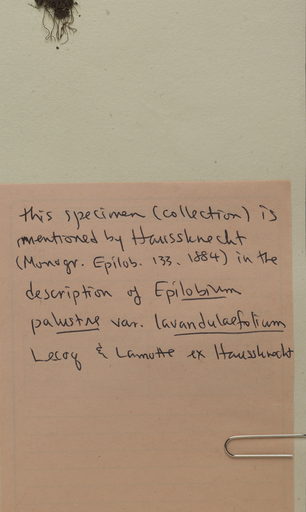 this specimen (collection) is
mentioned by Haussknecht
(Monogr. Epilob. 133. 1884) in the
description of Epilobium
palustre var. lavandulaefolium
Lecoq & Lamotte ex Haussknecht